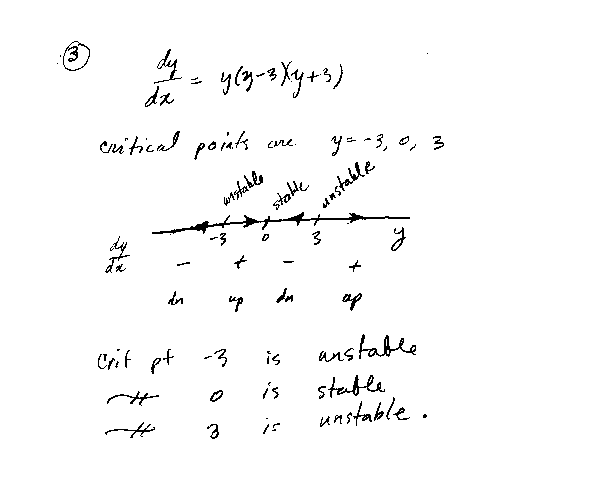 3
dy/dx = y(y-3)(y+3)
critical points are y = -3, 0, 3
unstable stable unstable
-3 0 3 y
dy/dx - + - +
dn up dn up
Crit pt -3 is unstable
-〃- 0 is stable
-〃- 3 is unstable.